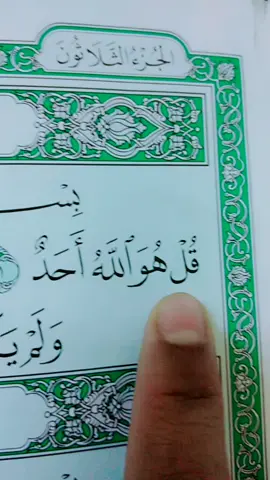 الجُزْءُ الثَّلَاثُونَ
بِسْـ
قُلْ هُوَ ٱللَّهُ أَحَدٌ
وَلَمْ